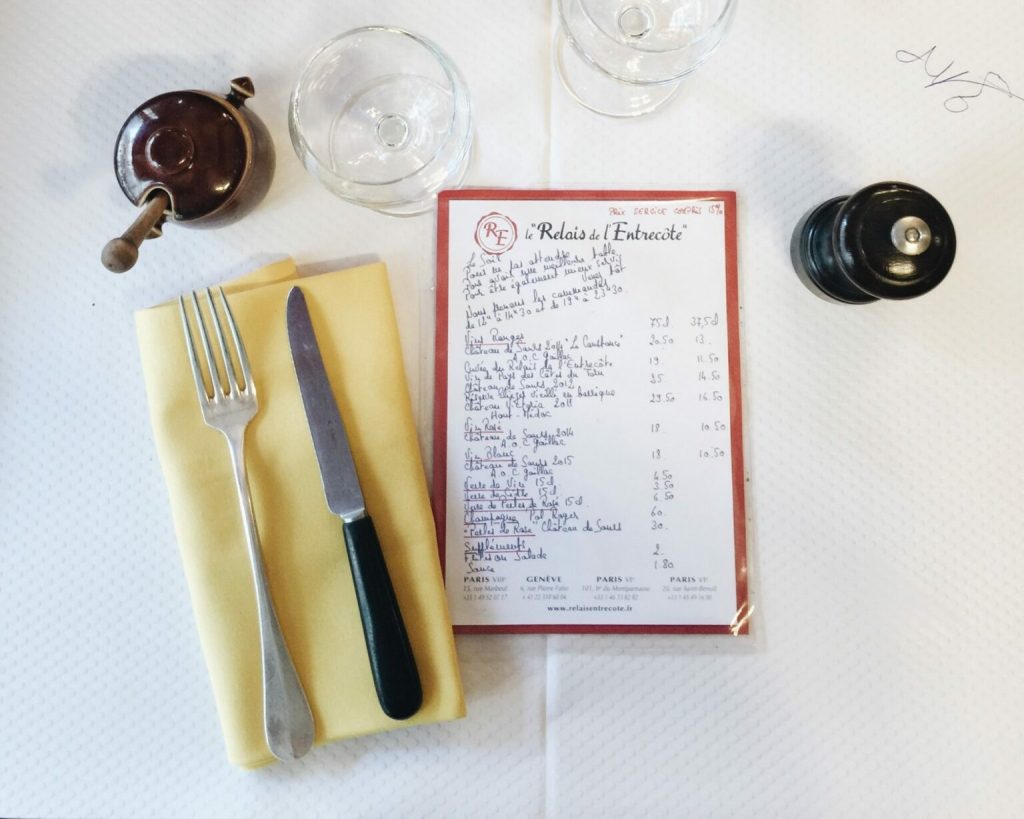 PRIX SERVICE COMPRIS 15%
RE
le "Relais de l'Entrecôte"
Le Soir
Pour ne pas attendre
Pour avoir une meilleure table
Pour être également mieux servis
Venez tôt
Nous prenons les commandes
de 12h à 14h30 et de 19h à 23h30.
75cl 37,5cl
Vins Rouges
Château de Saurs 2014 "La Constance" 20.50 13.
A.O.C Gaillac
Cuvée du Relais de l'Entrecôte 19. 11.50
Vin de Pays des Côtes du Tarn
Château de Saurs 2012 25 14.50
Réserve Eliezer vieilli en barrique
Château 2011 29.50 16.50
Haut-Médoc
Vin Rosé
Château de Saurs 2014 18. 10.50
A.O.C Gaillac
Vin Blanc
Château de Saurs 2015 18 10.50
A.O.C Gaillac
Verre de Vin 15cl 4.50
Verre de 15cl 3.50
Verre de Perles de Rosé 15cl. 6.50
Champagne Pol Roger 60.
"Perles de Rosé" Château de Saurs 30.
Suppléments
Salade 2.
Sauce 1.80
PARIS VIIIe GENÈVE PARIS VIe PARIS VIe
15, rue Marbeuf 6, rue Pierre Fatio 101, Bd du Montparnasse 20, rue Saint-Benoît
+33 1 49 52 07 17 + 41 22 310 60 04 +33 1 46 33 82 82 +33 1 45 49 16 00
www.relaisentrecote.fr